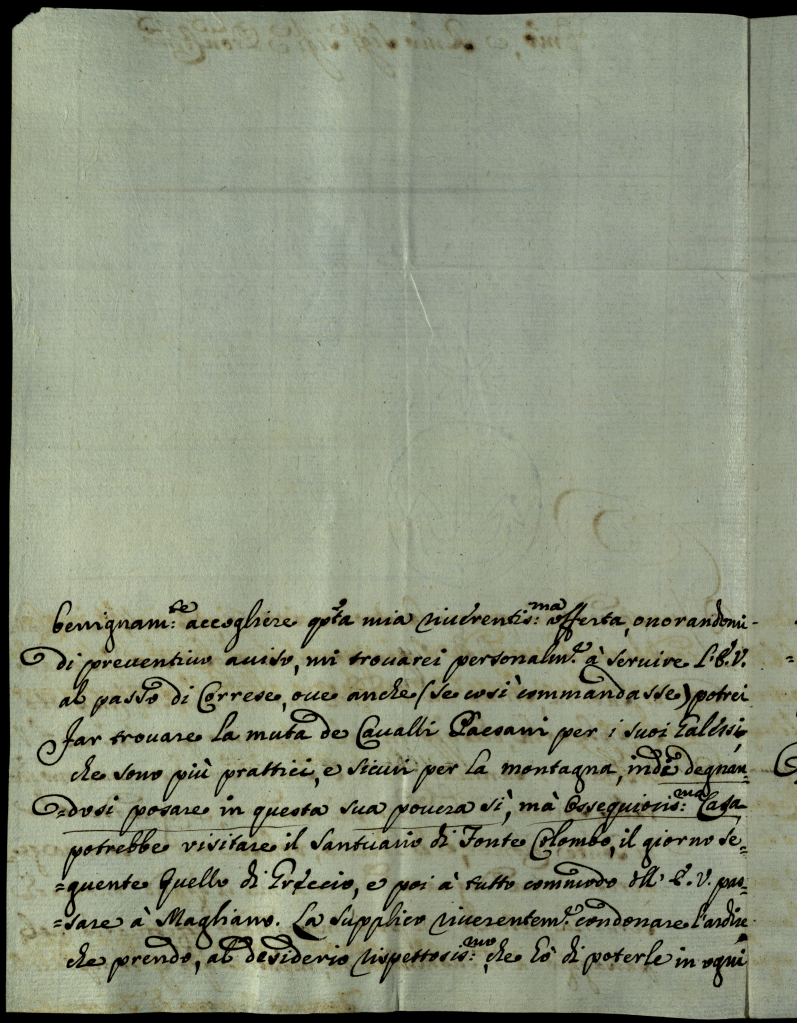 benignam:te accogliere qsta mia riverentis:ma offerta, onorandomi
di preventivo aviso, mi trovarei personalm.e à servire l'E.V.
al passo di Correse, ove anche (se così commandasse) potrei
far trovare la muta de Cavalli Paesani per i suoi Calessi,
che sono più prattici, e sicuri per la montagna, indi degnan-
=dosi posare in questa sua povera sì, mà ossequiosis:ma Casa
potrebbe visitare il Santuario di Fonte Colombo, il giorno se-
=quente quello di Greccio, e poi à tutto commodo dell'E.V. pas-
=sare à Magliano. La supplico riverentem.e condonare l'ardire
che prendo, al desiderio rispettosis:mo, che hò di poterle in ogni